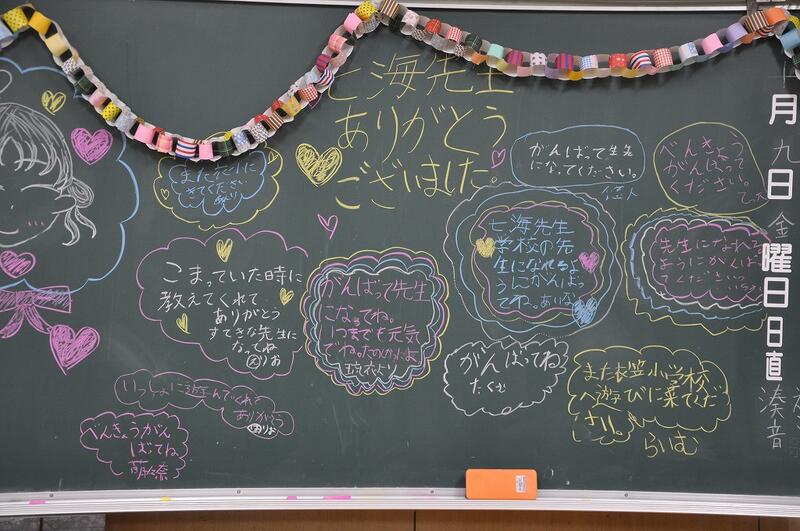 七海先生
ありがとう
ございました。
また衣笠小に
きてください
こまっていた時に
教えてくれて、
ありがとう
すてきな先生に
なってね
りお
がんばって先生
になってね。
いつまでも元気
でね。たのしかったよ
より
がんばって先生
になってください。
べんきょう
がんばって
ください。
七海先生
学校の先
生になれるよ
うにがんばっ
てね。
先生になれる
ようにがんば
ってください
がんばってね
たくむ
また衣笠小学校
へ遊びに来てくだ
さい。
らいむ
いっしょに遊んでくれて
ありがとう
りお
べんきょうがん
ばってね
萌々奈
月
九
日
金
曜
日
日
直
湊
音